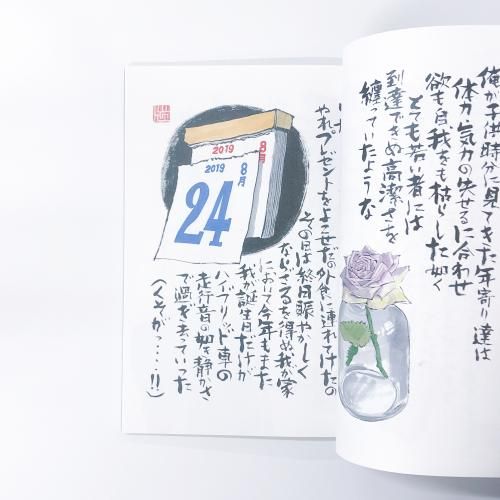 俺が子供時分に見てきた年寄り達は
体力・気力の失せるに合わせ
欲も自我をも枯らした如く
とても若い者には
到達できぬ高潔さを
纏っていたような
やれプレゼントをよこせだの外食に連れてけだの
その日は終日賑やかしく
ならざるを得ぬ我が家
において今年もまた
我が誕生日だけが
ハイブリット車の
走行音の如き静かさ
で過ぎ去っていった
(くそがっ・・・・!!)
2019
8月
2019
8月
24